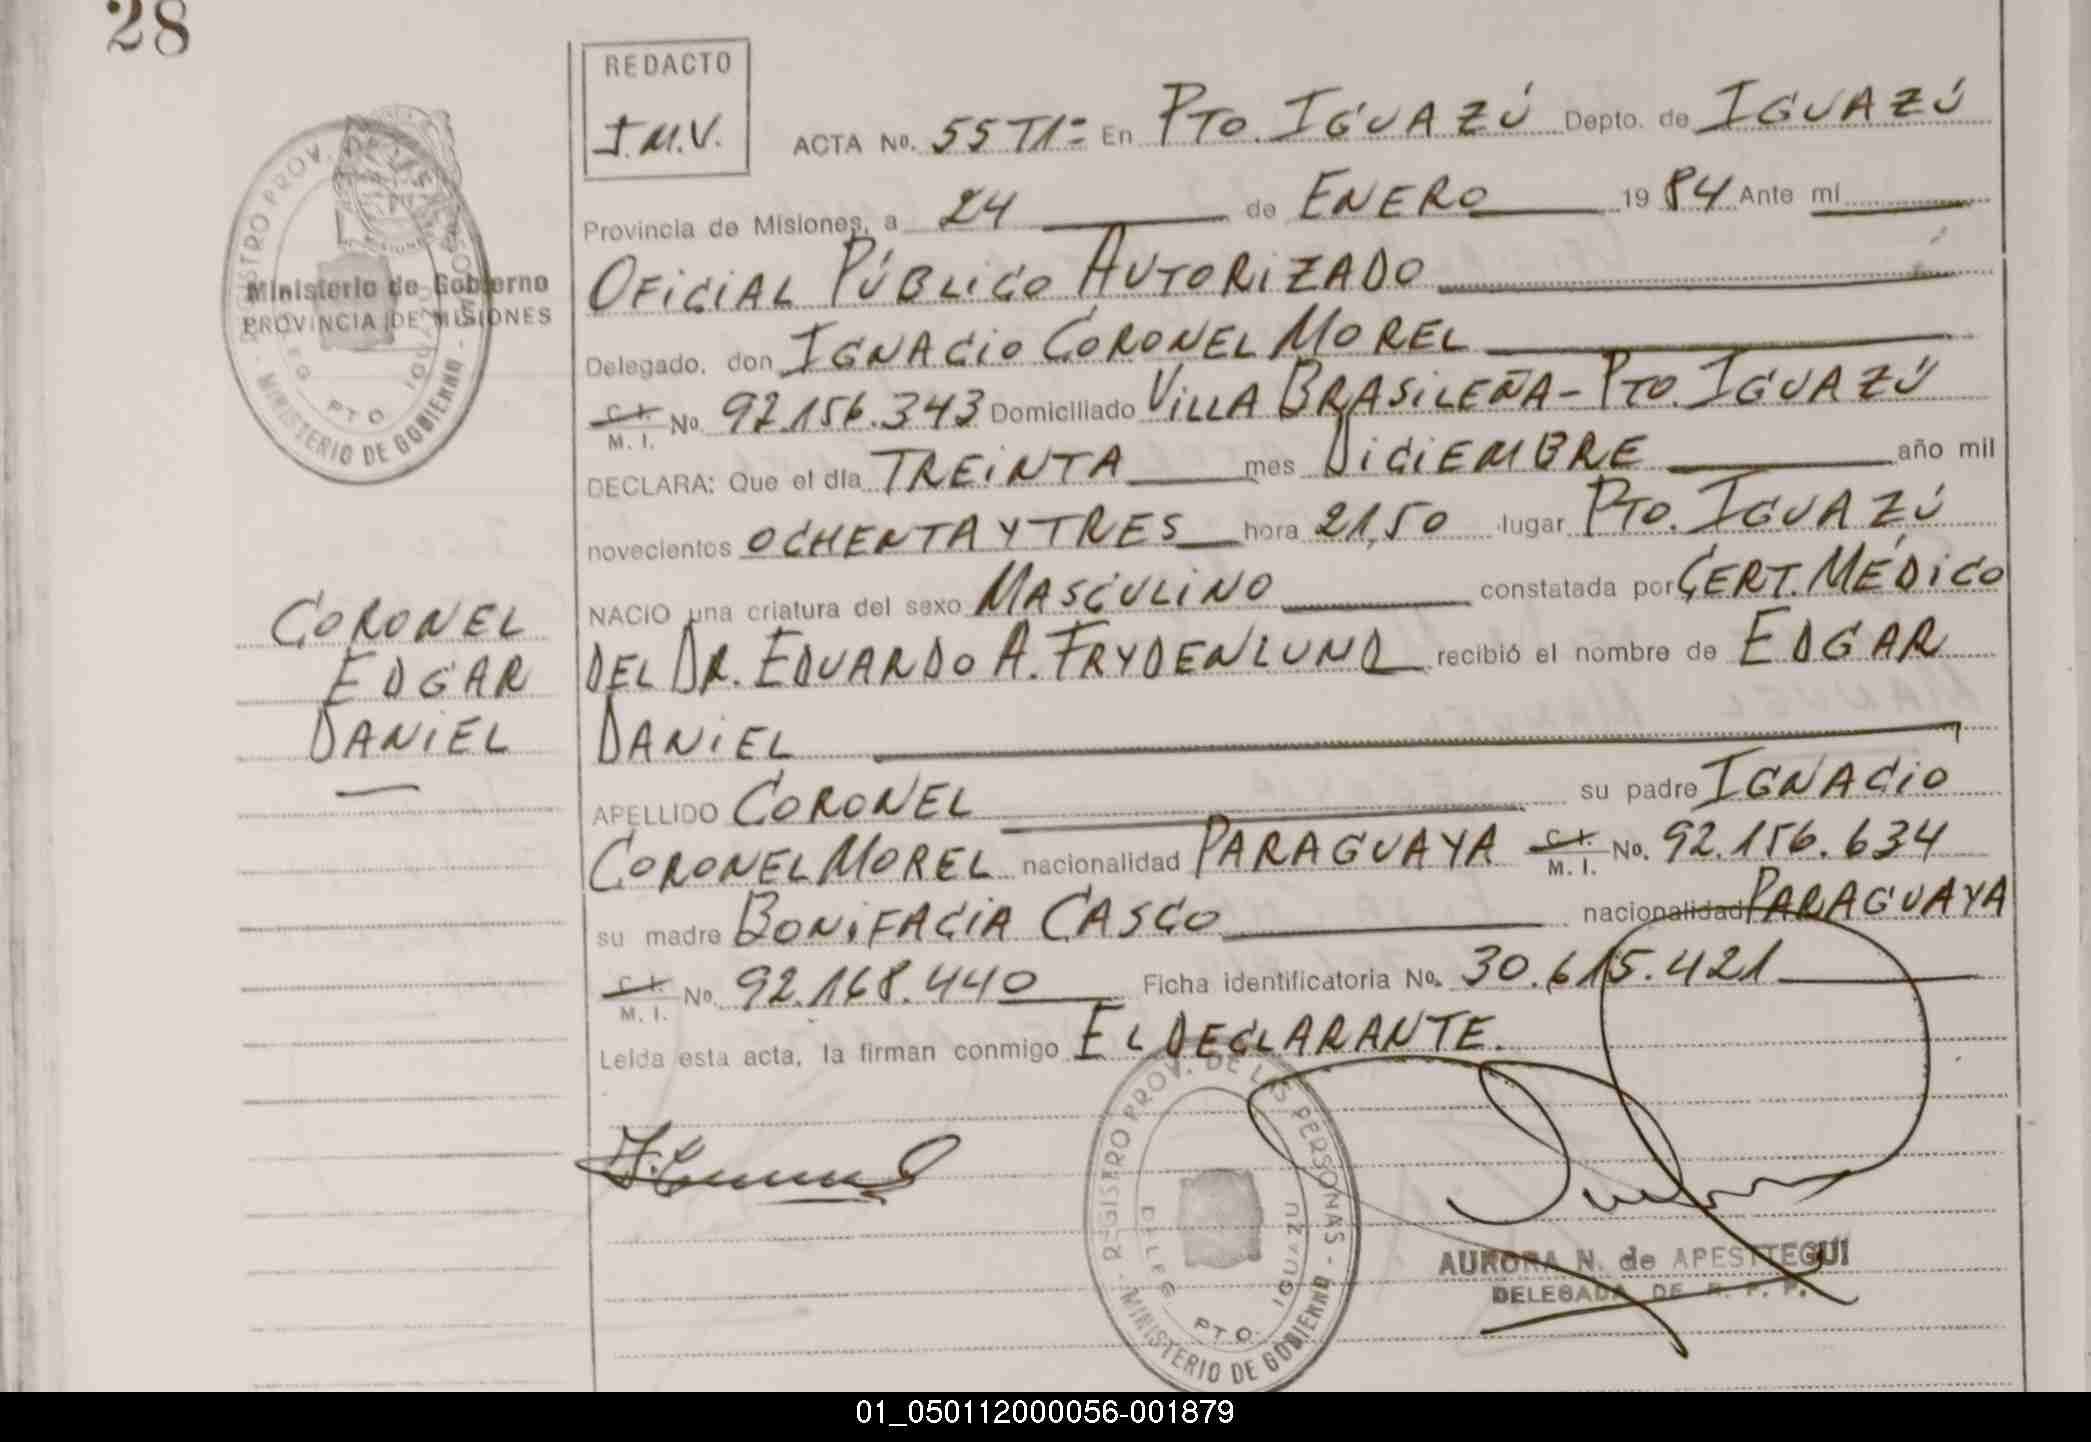 28
REDACTO
J.M.V.
ACTA No. 55 T1= En PTO. IGUAZÚ Depto. de IGUAZÚ
Provincia de Misiones, a 24 de ENERO 1984 Ante mí
OFICIAL PÚBLICO AUTORIZADO
Delegado, don IGNACIO CORONEL MOREL
C.I. M. I. No. 92.156.343 Domiciliado VILLA BRASILEÑA - PTO. IGUAZÚ
DECLARA: Que el día TREINTA mes DICIEMBRE año mil
novecientos OCHENTA Y TRES hora 21,50 lugar PTO. IGUAZÚ
NACIO una criatura del sexo MASCULINO constatada por CERT. MÉDICO
DEL DR. EDUARDO A. FRYDENLUND recibió el nombre de EDGAR
DANIEL
APELLIDO CORONEL su padre IGNACIO
CORONEL MOREL nacionalidad PARAGUAYA C.I. M. I. No. 92.156.634
su madre BONIFACIA CASCO nacionalidad PARAGUAYA
C.I. M. I. No. 92.168.440 Ficha identificatoria No. 30.615.421
Leída esta acta, la firman conmigo EL DECLARANTE.
Ministerio de Gobierno
PROVINCIA DE MISIONES
REGISTRO PROV. DE LAS PERSONAS - MINISTERIO DE GOBIERNO -
DELEG. PTO. IGUAZU
CORONEL
EDGAR
DANIEL
REGISTRO PROV. DE LAS PERSONAS - MINISTERIO DE GOBIERNO -
DELEG. PTO. IGUAZU
AURORA N. de APESTTEGUI
DELEGADA DE R. P. P.
01_050112000056-001879